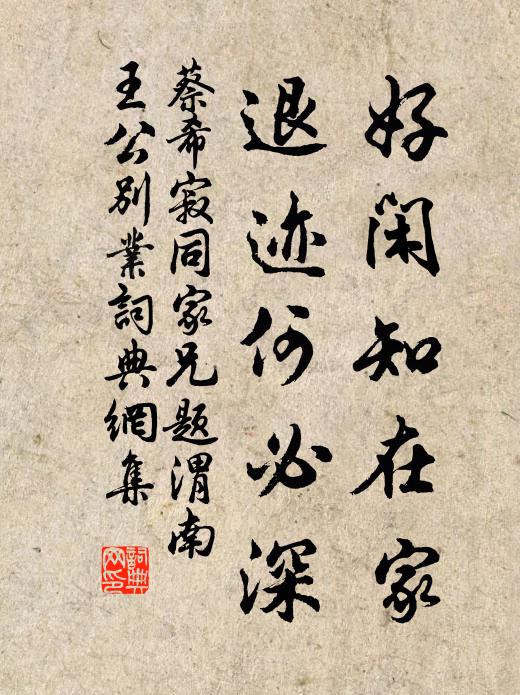 好闲知在家
退迹何必深
蔡希寂同家兄题渭南
王公别業詞典網集
詞典网印